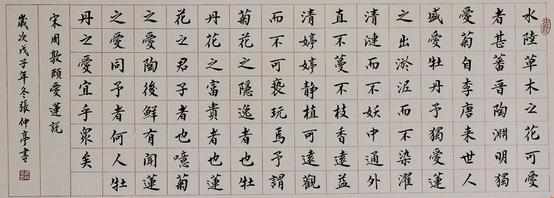 水陸草木之花可愛
者甚蕃晉陶淵明獨
愛菊自李唐來世人
盛愛牡丹予獨愛蓮
之出淤泥而不染濯
清漣而不妖中通外
直不蔓不枝香遠益
清婷婷靜植可遠觀
而不可褻玩焉予謂
菊花之隱逸者也牡
丹花之富貴者也蓮
花之君子者也噫菊
之愛陶後鮮有聞蓮
之愛同予者何人牡
丹之愛宜乎衆矣
宋周敦頤愛蓮説
歲次戊子年冬張仲亭書